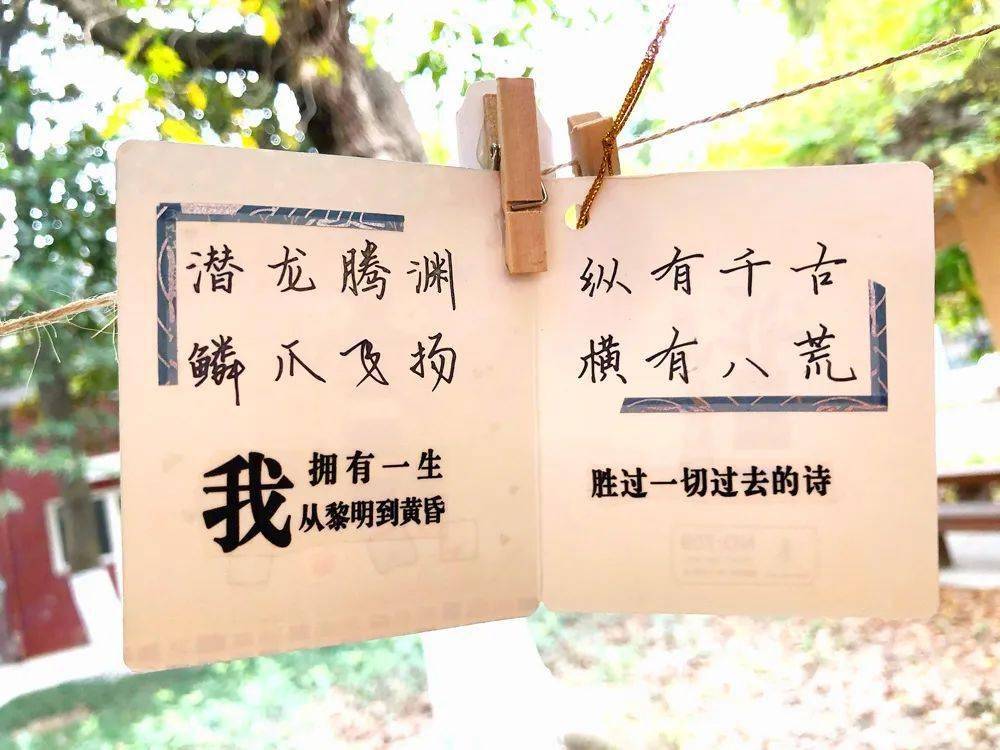 潜龙腾渊
鳞爪飞扬
我拥有一生
从黎明到黄昏
纵有千古
横有八荒
胜过一切过去的诗